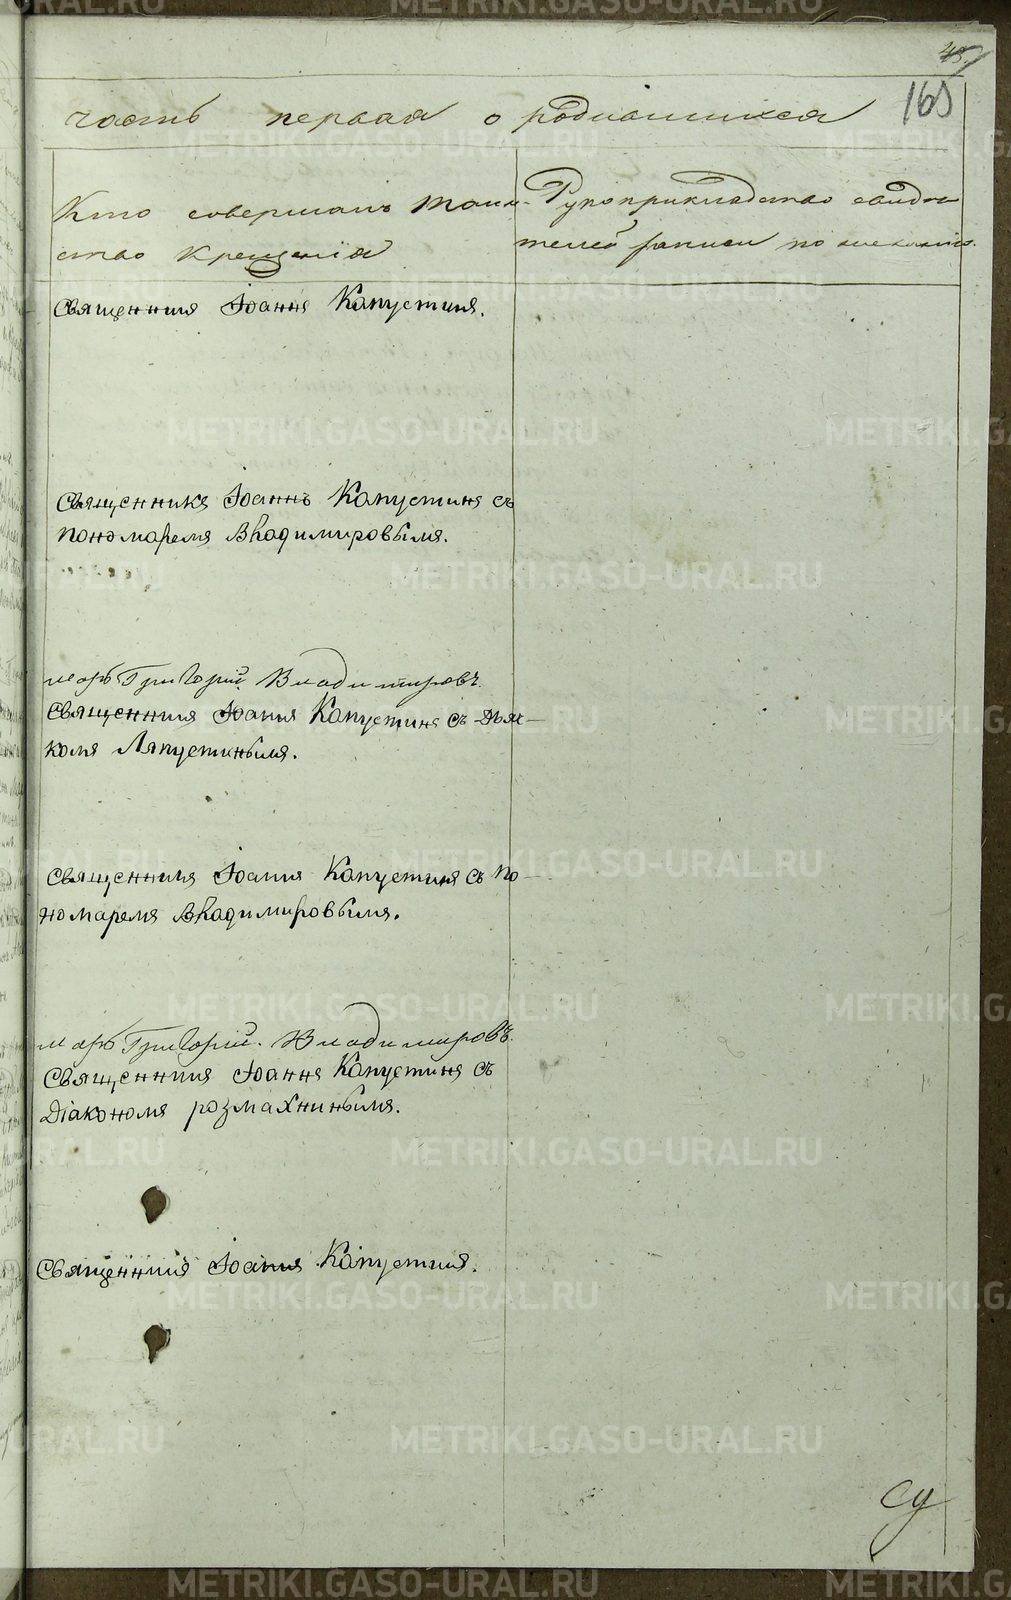 165
часть первая о родившихся
Кто совершалъ таин-
ство крещенія
Рукоприкладство свидѣ
телей записи по желанію.
Священникъ Іоаннъ Капустинъ.
Священникъ Іоаннъ Капустинъ съ
пономаремъ Владимировымъ.
марь Григорій Владимировъ.
Священникъ Іоаннъ Капустинъ съ дья-
комъ Ляпустинымъ.
Священникъ Іоаннъ Капустинъ съ по-
номаремъ Владимировымъ.
марь Григорій Владимировъ.
Священникъ Іоаннъ Капустинъ съ
Діакономъ Размахнинымъ.
Священникъ Іоаннъ Капустинъ.
METRIKI.GASO-URAL.RU